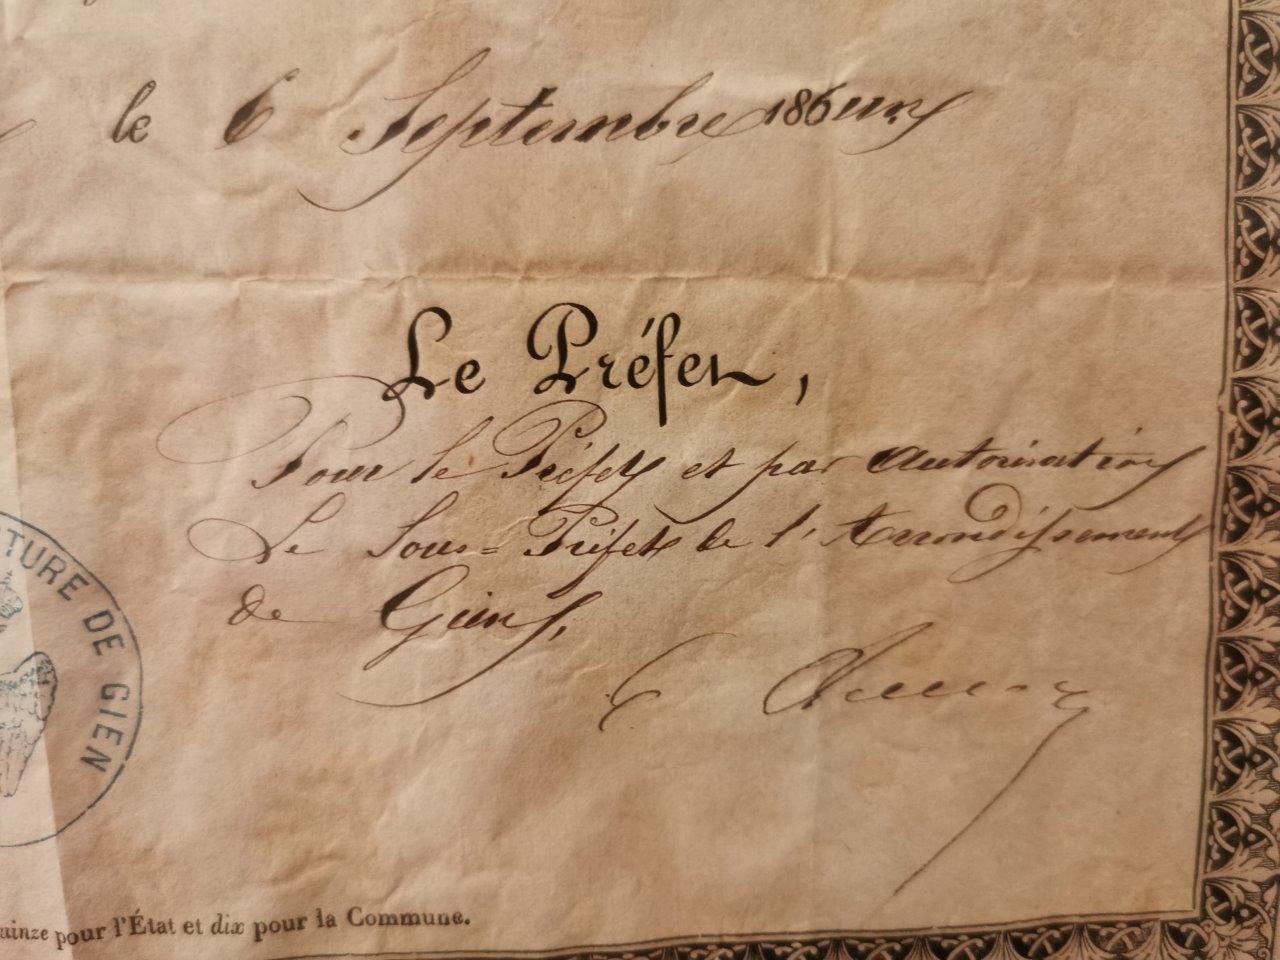 le 6 Septembre 186un
Le Préfet,
Pour le Préfet et par autorisation
Le Sous=Préfet de l'Arrondissement
de Gien,
TURE DE GIEN
uinze pour l'État et dix pour la Commune.